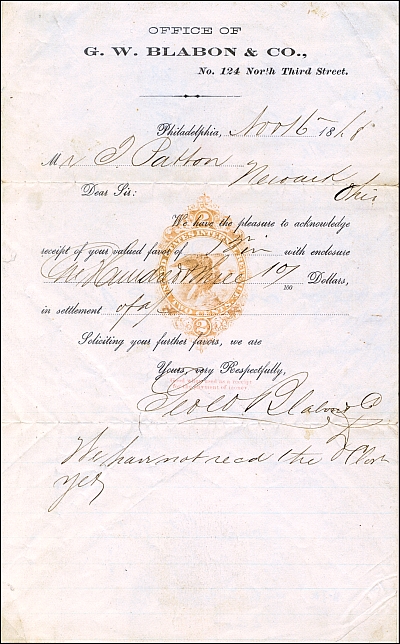 OFFICE OF
G. W. BLABON & CO.,
No. 124 North Third Street.
Philadelphia, Nov 16 18
Mr J Patton
Newark
Ohio
Dear Sir:
We have the pleasure to acknowledge
receipt of your valued favor of with enclosure
One Hundred three 10/100 Dollars,
in settlement of a/c
Soliciting your further favors, we are
Yours, very Respectfully,
Geo W Blabon & Co
We have not recd the Cloth
yet